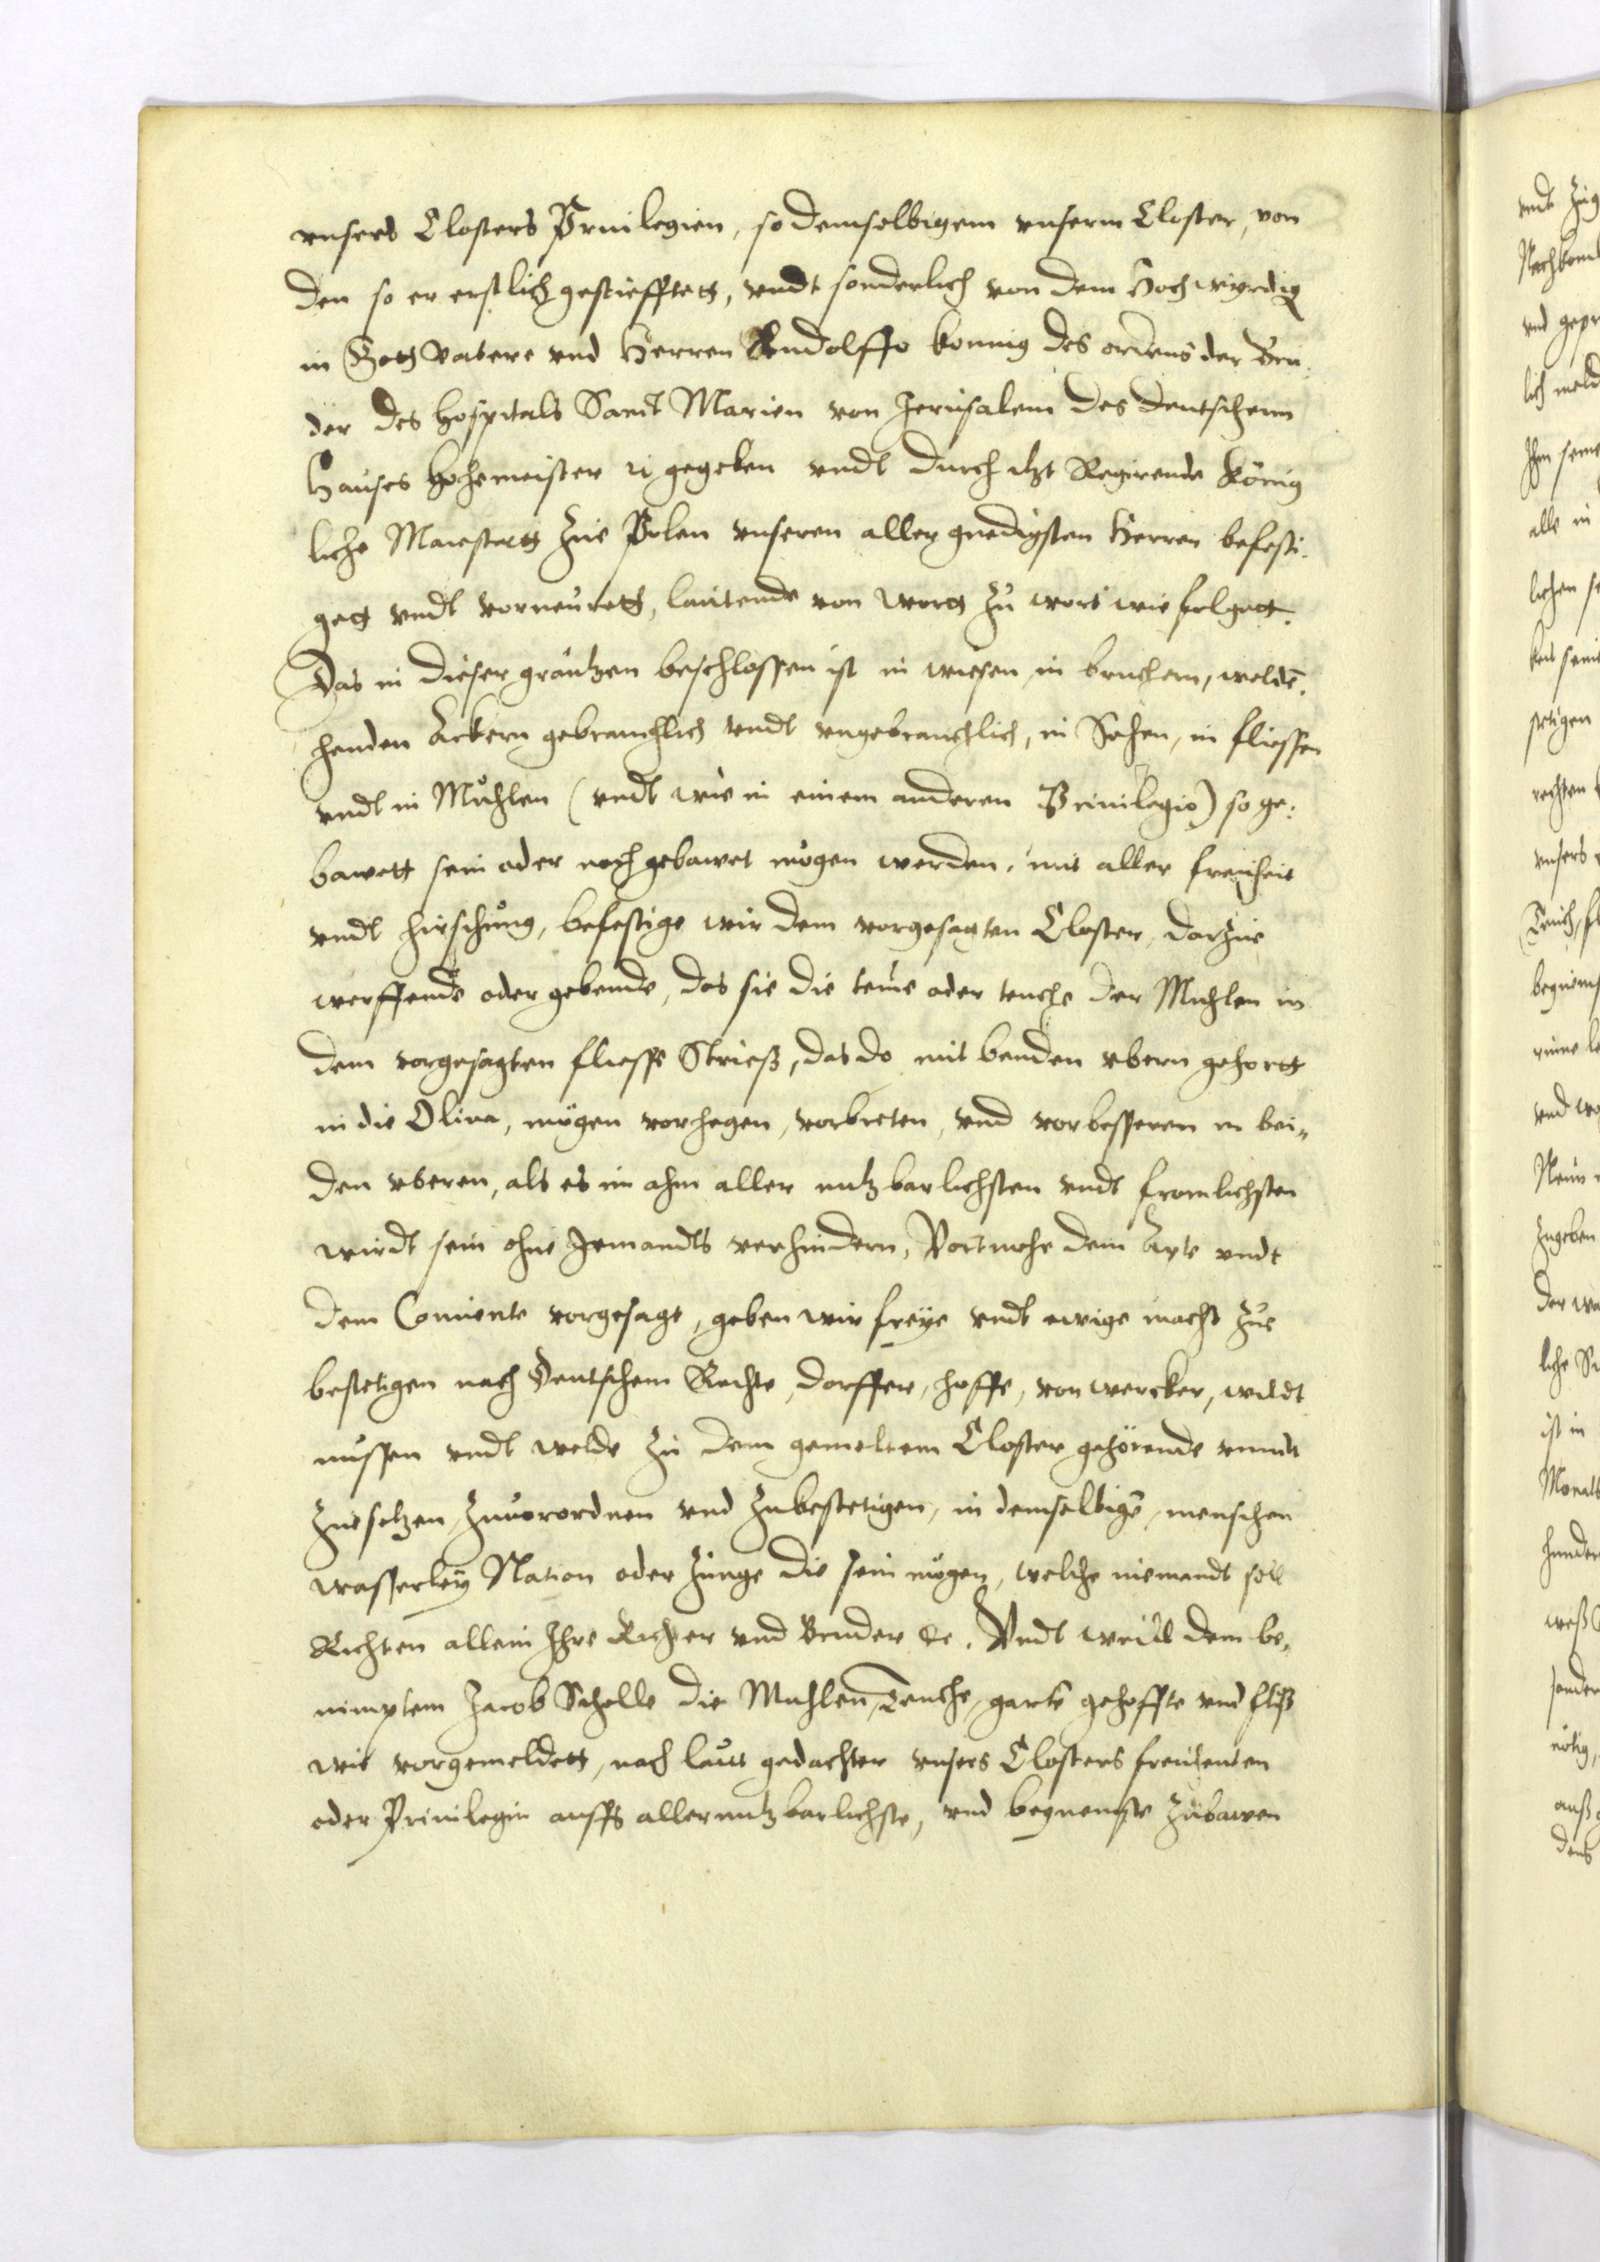 vnsers Closters Priuilegien, so demselbigem vnserm Closter, von
den so er erstlich gestiefftett, vndt sonderlich von dem Hochwyrdig
in Gott Vatere vnd Herren Rudolffo konnig des ordens der Bru¬
der des Hospitals Sanct Marien von Jerusalem des deutschenn
Hauses Hohemeister gegeben vndt durch itzt Regirende König
liche Maiestett zue Polen vnseren aller gnedigsten Herren befesti¬
gett vndt vorneurett, lautende von wortt zu wort wie folgett.
Das in dieser gräntzen beschlossen ist in wiesen in bruchern, welde¯,
henden Ackern gebrauchlich vndt vngebrauchlich, in Sehen, in fliessen
vndt in Mühlen (vndt wie in einem anderen Priuilegio) so ge:
bawett sein oder noch gebawet mögen werden, mit aller freiheit
vndt hirschung, befestige wir dem vorgesagten Closter, darzue
werffende oder gebende, das sie die teme oder teuche der Muhlen in
dem vorgesagten fliesse Strieß, das do mit benden vbern gehortt
in die Oliua, mögen vorhegen, vorbreten, vnd vorbesseren in bei¬
den vberen, als es im ahm aller nutzbarlichsten vndt fromlichsten
wirdt sein ohne Jemandts verhindern, Vortmehe dem Apte vndt
dem Conuente vorgesagt, geben wir freye vndt ewige macht zue
bestetigen nach Deutschem Rechte, dorffer, hoffe, vorwercker, wildt
nussen vndt welde zu dem gemeltem Closter gehörende vnndt
zuesetzen, zuuorordnen vnd zubestetigen, in demselbige¯, menschen
wasserley Nation oder zunge die sein mögen, welche niemandt soll
Richten allein Ihre Richter vnd Bruder &c. Vndt weill dem be¬
nimptem Jacob Schelle die Muhlen, Teuche, garte¯ gehoffte vnd fliß
wie vorgemeldett, nach laut gedachter vnsers Closters freiheiten
oder Priuilegin auffs allernutzbarlichste, vnd bequemste zubawen